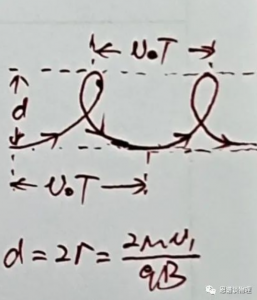 v₀T
d
v₀T
d = 2r = \frac{2mv₁}{qB}